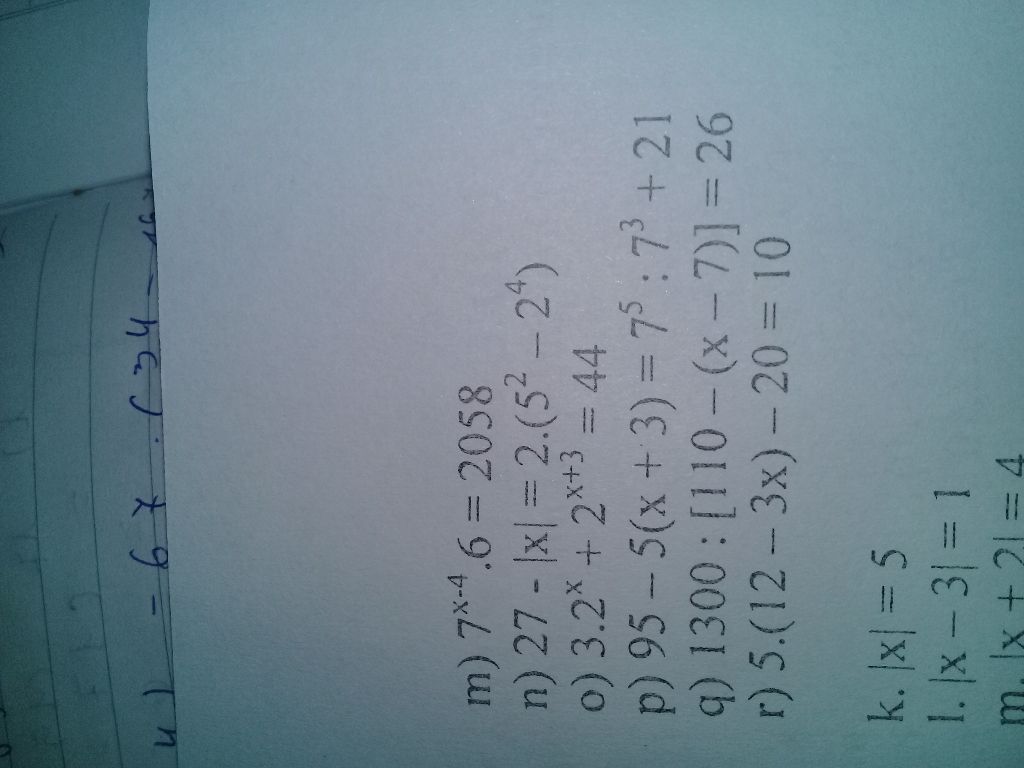 u) - 67 . (34 -
m) 7ˣ⁻⁴.6 = 2058
n) 27 - |x| = 2.(5² – 2⁴)
o) 3.2ˣ + 2ˣ⁺³ = 44
p) 95 – 5(x + 3) = 7⁵ : 7³ + 21
q) 1300 : [110 – (x – 7)] = 26
r) 5.(12 – 3x) – 20 = 10
k. |x| = 5
l. |x – 3| = 1
m. |x + 2| = 4